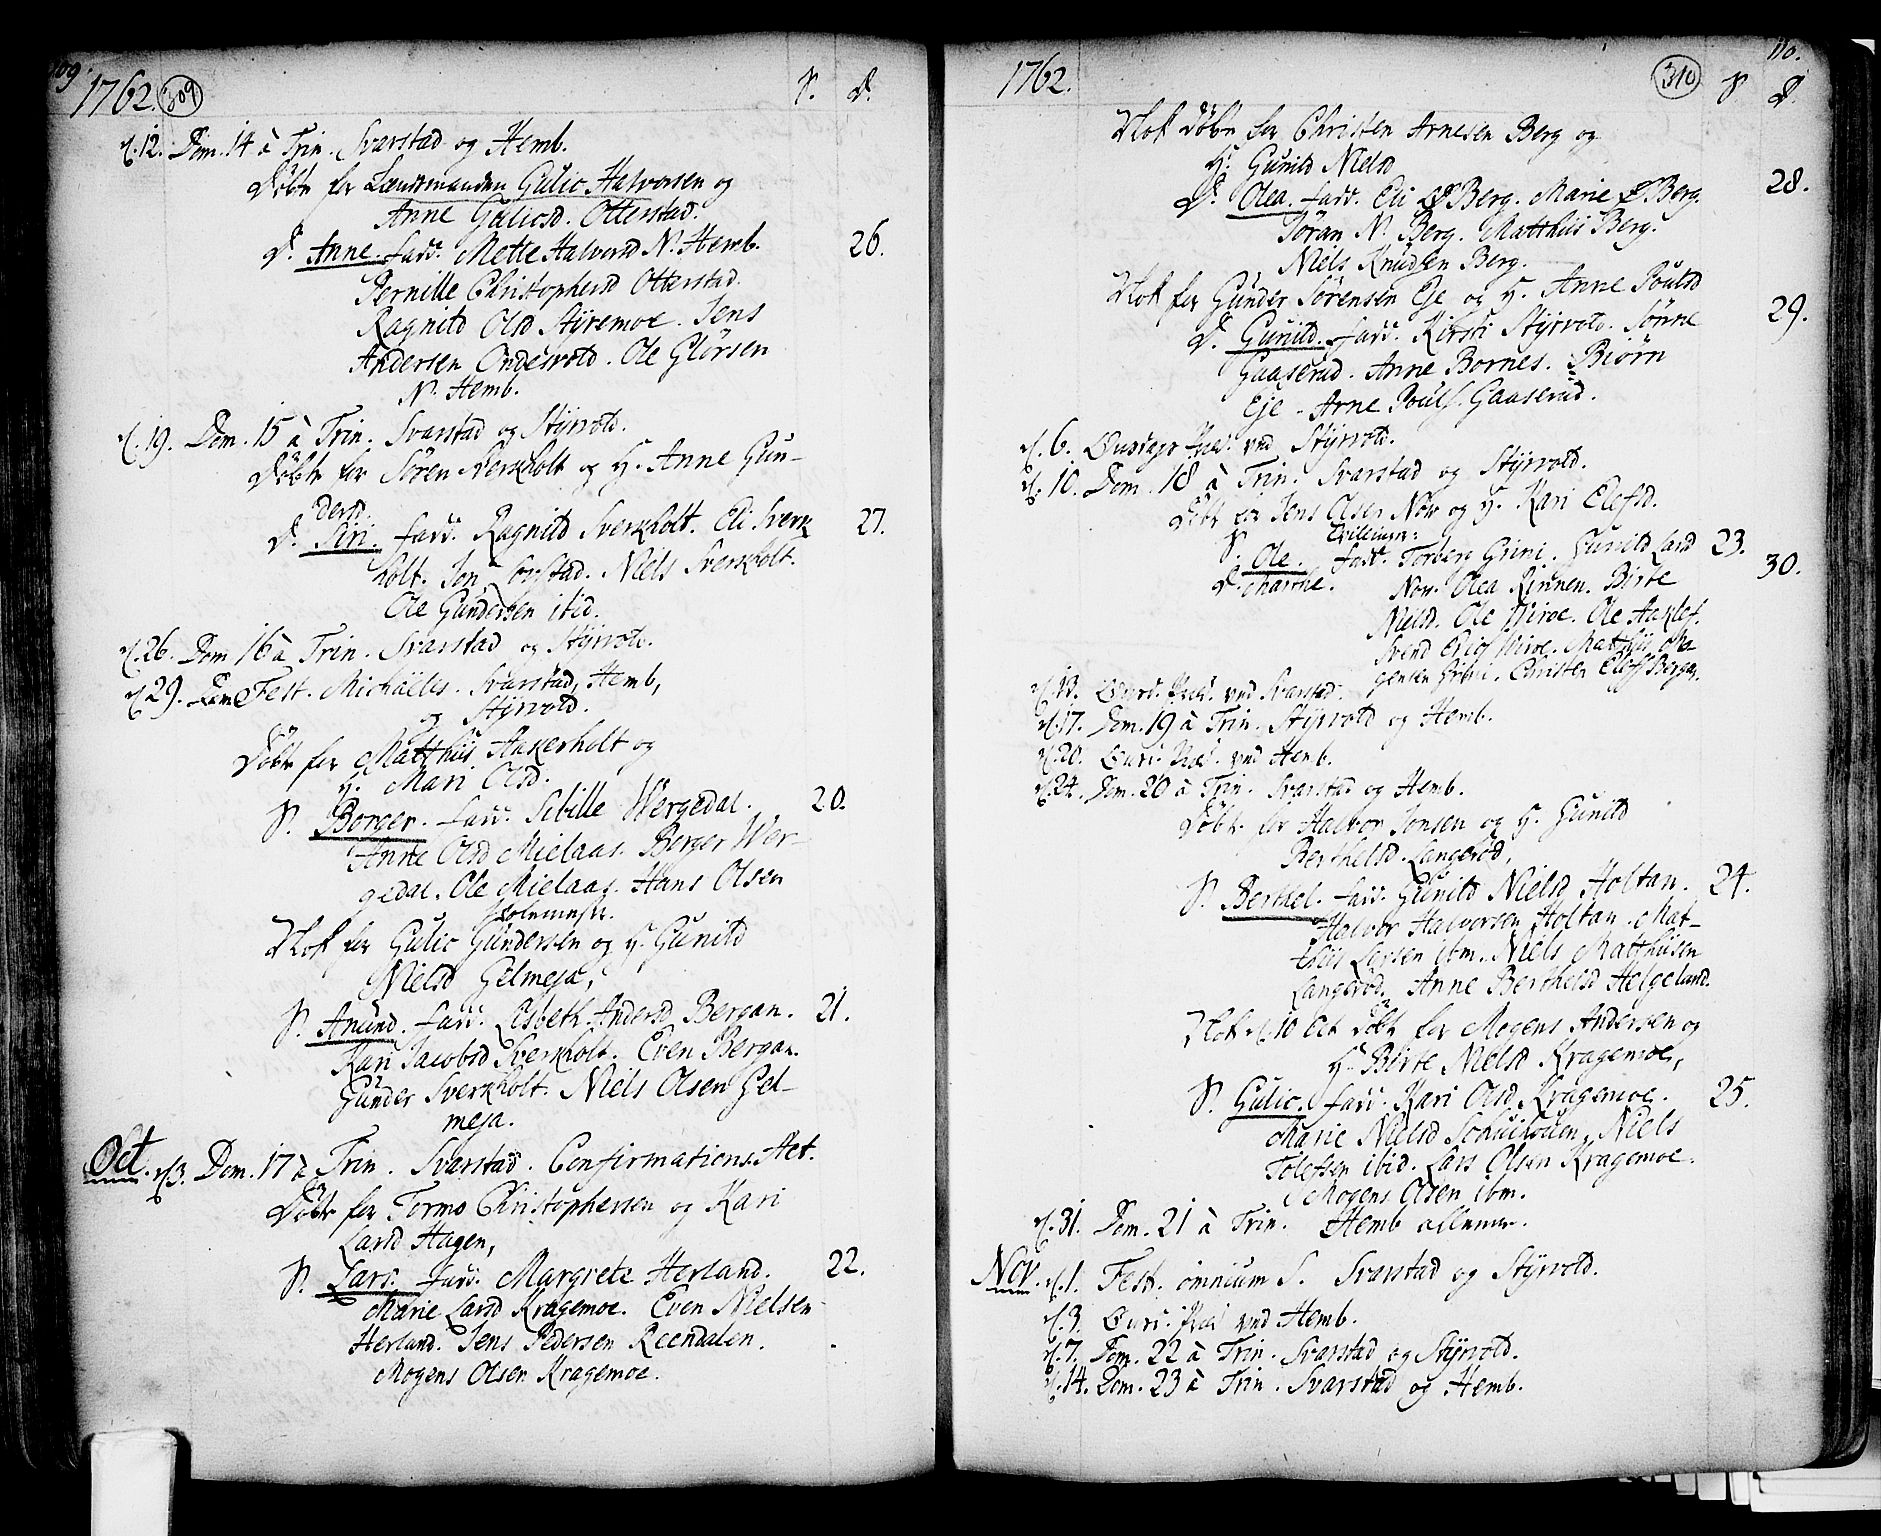 109.
1762. 309
S. D.
d. 12. Dom. 14 à Trin. Svarstad og Hemb.
Döbt for Lensmanden Gulic Halvorsen og
Anne Gulicsd. Otterstad.
D. Anne. fadd. Mette Halvorsd N. Hemb. 26.
Pernille Christophersd Otterstad.
Ragnild Olsd Styremoe. Jens
Andersen Ondesvold. Ole Glörsen
N. Hemb.
d. 19. Dom. 15 à Trin. Svarstad og Styrvold.
Döbt for Sören Sverkholt og H. Anne Gun-
dersd.
D. Siri. fadd. Ragnild Sverkholt. Eli Sverk
holt. Jon Lofstad. Niels Sverkholt.
27.
Ole Gundersen ibid.
d. 26. Dom 16 à Trin. Svarstad og Styrvold.
d. 29. Fest. Michaelis. Svarstad, Hemb,
og Styrvold.
Döbt for Matthiis Aakerholt og
H. Mari Olsd.
S. Borger. fadd. Sibille Wergedal. 20.
Anne Olsd Mielaas. Berger Wer-
gedal. Ole Mielaas. Hans Olsen
Holmenstr.
Nok for Gulic Gundersen og H. Gunild
Nielsd Gelmeja,
S. Anund. fadd. Lisbeth Andersd Bergan. 21.
Kari Jacobsd Sverkholt. Even Bergan.
Gunder Sverkholt. Niels Olsen Gel-
meja.
Oct. d. 3. Dom. 17 à Trin. Svarstad. Confirmations Act.
Döbt for Tormo Christophersen og Kari
Larsd Hagen,
S. Lars. fadd. Margrete Herland. 22.
Marie Larsd Kragemoe. Even Nielsen
Herland. Jens Pedersen Reendalen.
Mogens Olsen Kragemoe.
110.
1762. 310
S. D.
Nok döbt for Christen Arnesen Berg og
H. Gunild Nielsd
D. Olea. fadd. Eli Berg. Marie Berg. 28.
Söran N. Berg. Matthiis Berg.
Niels Knudsen Berg.
Nok for Gunder Sörensen Eje og H. Anne Poulsd
D. Gunild. fadd. Kirsti Styrvold. Sönne 29.
Gaaserud. Anne Bornes. Biörn
Eje. Arne Pouls. Gaaserud.
d. 6. Onsdags Præd. ved Styrvold.
d. 10. Dom. 18 à Trin. Svarstad og Styrvold.
Döbt for Jens Olsen Nöw og H. Kari Elefsd.
Tvillinger:
S. Ole. fadd. Torberg Grini. Gunild Land 23.
D. Marthe. Now. Olea Rinnen. Birte 30.
Nielsd. Ole Wirve. Ole Aaklef.
Svend Wirve. Matthiis Mo-
gensen Grini. Christen Elefs Bergan.
d. 13. Præd. ved Svarstad.
d. 17. Dom. 19 à Trin. Styrvold og Hemb.
d. 20. Præd. ved Hemb.
d. 24. Dom. 20 à Trin. Svarstad og Hemb.
Döbt for Halvor Jonsen og H. Gunild
Berthelsd. Langeröd,
S. Berthel. fadd. Gunild Nielsd Holtan. 24.
Halvor Halvorsen Holtan. Mat-
thiis Larsen ibm. Niels Matthiisen
Langeröd. Anne Berthelsd Helgeland.
Nok d. 10 Oct döbt for Mogens Andersen og
H. Birte Nielsd Kragemoe,
S. Gulic. fadd. Kari Olsd Kragemoe. 25.
Marie Nielsd Niels
Tolefsen ibid. Lars Olsen Kragemoe.
Mogens Olsen ibm.
d. 31. Dom. 21 à Trin. Hemb allene.
Nov. d. 1. Fest. omnium S. Svarstad og Styrvold.
d. 3. Præd ved Hemb.
d. 7. Dom. 22 à Trin. Svarstad og Styrvold.
d. 14. Dom. 23 à Trin. Svarstad og Hemb.